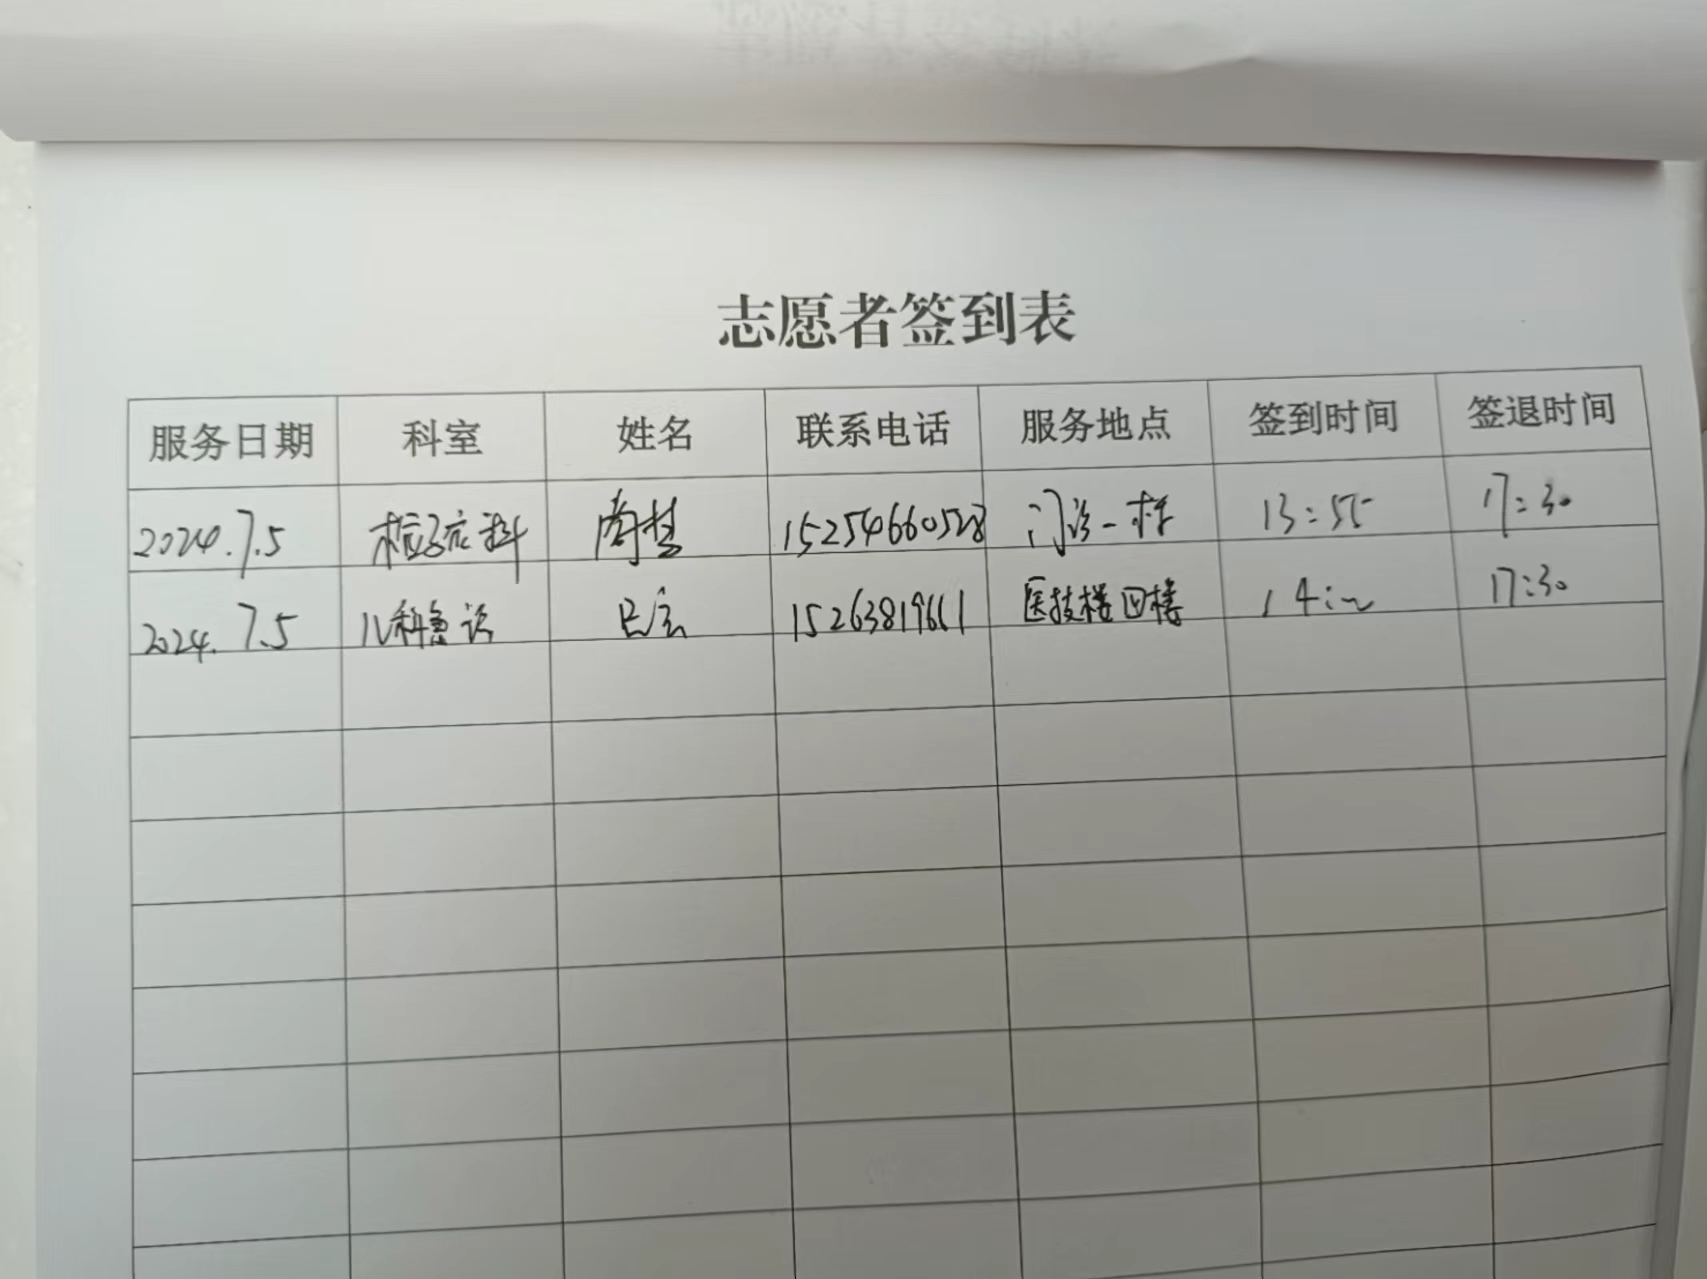 志愿者签到表
服务日期 科室 姓名 联系电话 服务地点 签到时间 签退时间
2024.7.5 科 15254660528 门诊一楼 13:55 17:30
2024.7.5 儿科急诊 15263819661 医技楼四楼 14:00 17:30